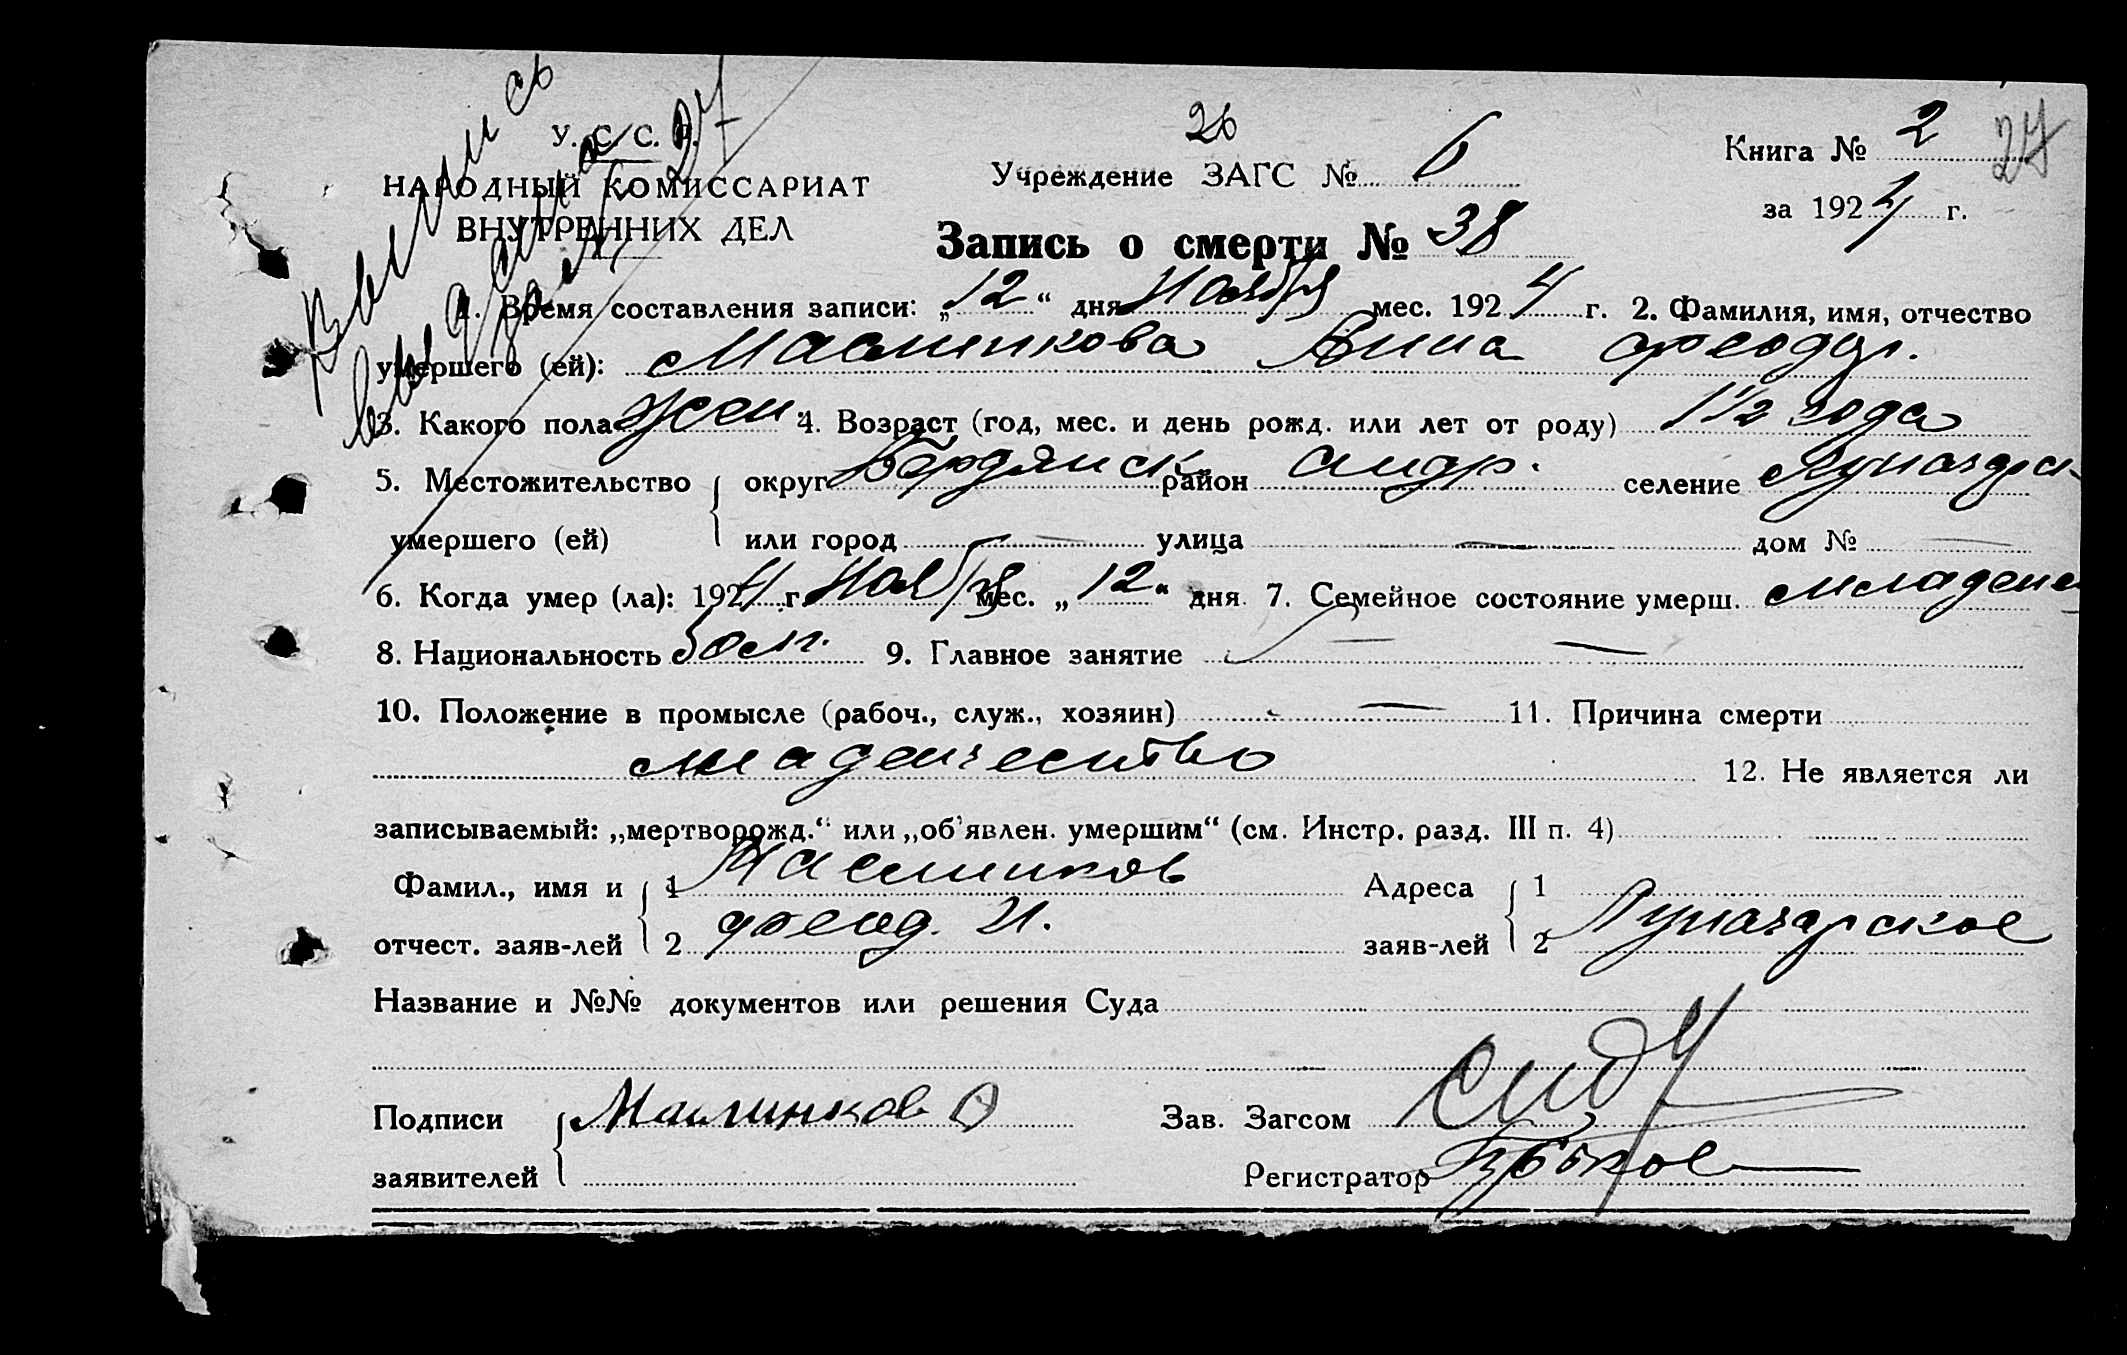 Выпись выдана
27
26
У. С. С. Р.
НАРОДНЫЙ КОМИССАРИАТ
ВНУТРЕННИХ ДЕЛ
Учреждение ЗАГС № 6
Книга № 2
27
за 1924 г.
Запись о смерти № 38
1. Время составления записи: „12“ дня Ноября мес. 1924 г. 2. Фамилия, имя, отчество
умершего (ей): Маслинкова Анна Феодор.
3. Какого пола жен. 4. Возраст (год, мес. и день рожд. или лет от роду) 1 1/2 года
5. Местожительство округ Бердянск район Андр. селение Луначарск
умершего (ей) или город — улица — дом № —
6. Когда умер (ла): 1924 г. Ноября мес. „12“ дня. 7. Семейное состояние умерш. младенец
8. Национальность болг. 9. Главное занятие —
10. Положение в промысле (рабоч., служ., хозяин) — 11. Причина смерти
младенчество 12. Не является ли
записываемый: „мертворожд.“ или „об'явлен. умершим“ (см. Инстр. разд. III п. 4)
Фамил., имя и 1 Маслинков Адреса 1
отчест. заяв-лей 2 Феод. И. заяв-лей 2 Луначарское
Название и №№ документов или решения Суда
Подписи Маслинков Зав. Загсом
заявителей Регистратор